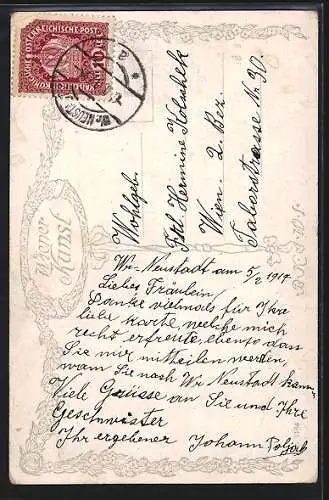 KAISERLICHE KÖNIGLICHE ÖSTERREICHISCHE POST
Wiener Kunst
Wohlgeb.
Frl. Hermine
Wien. 2 Bez.
Taborstrasse Nr 90.
Wr Neustadt am 5/2 1917
Liebes Fräulein!
Danke vielmals für Ihre
liebe Karte, welche mich
recht erfreute, ebenso das
Sie mir mitteilen werden,
wann Sie nach Wr Neustadt kommen
Viele Grüsse an Sie und Ihre
Geschwister
Ihr ergebener Johann